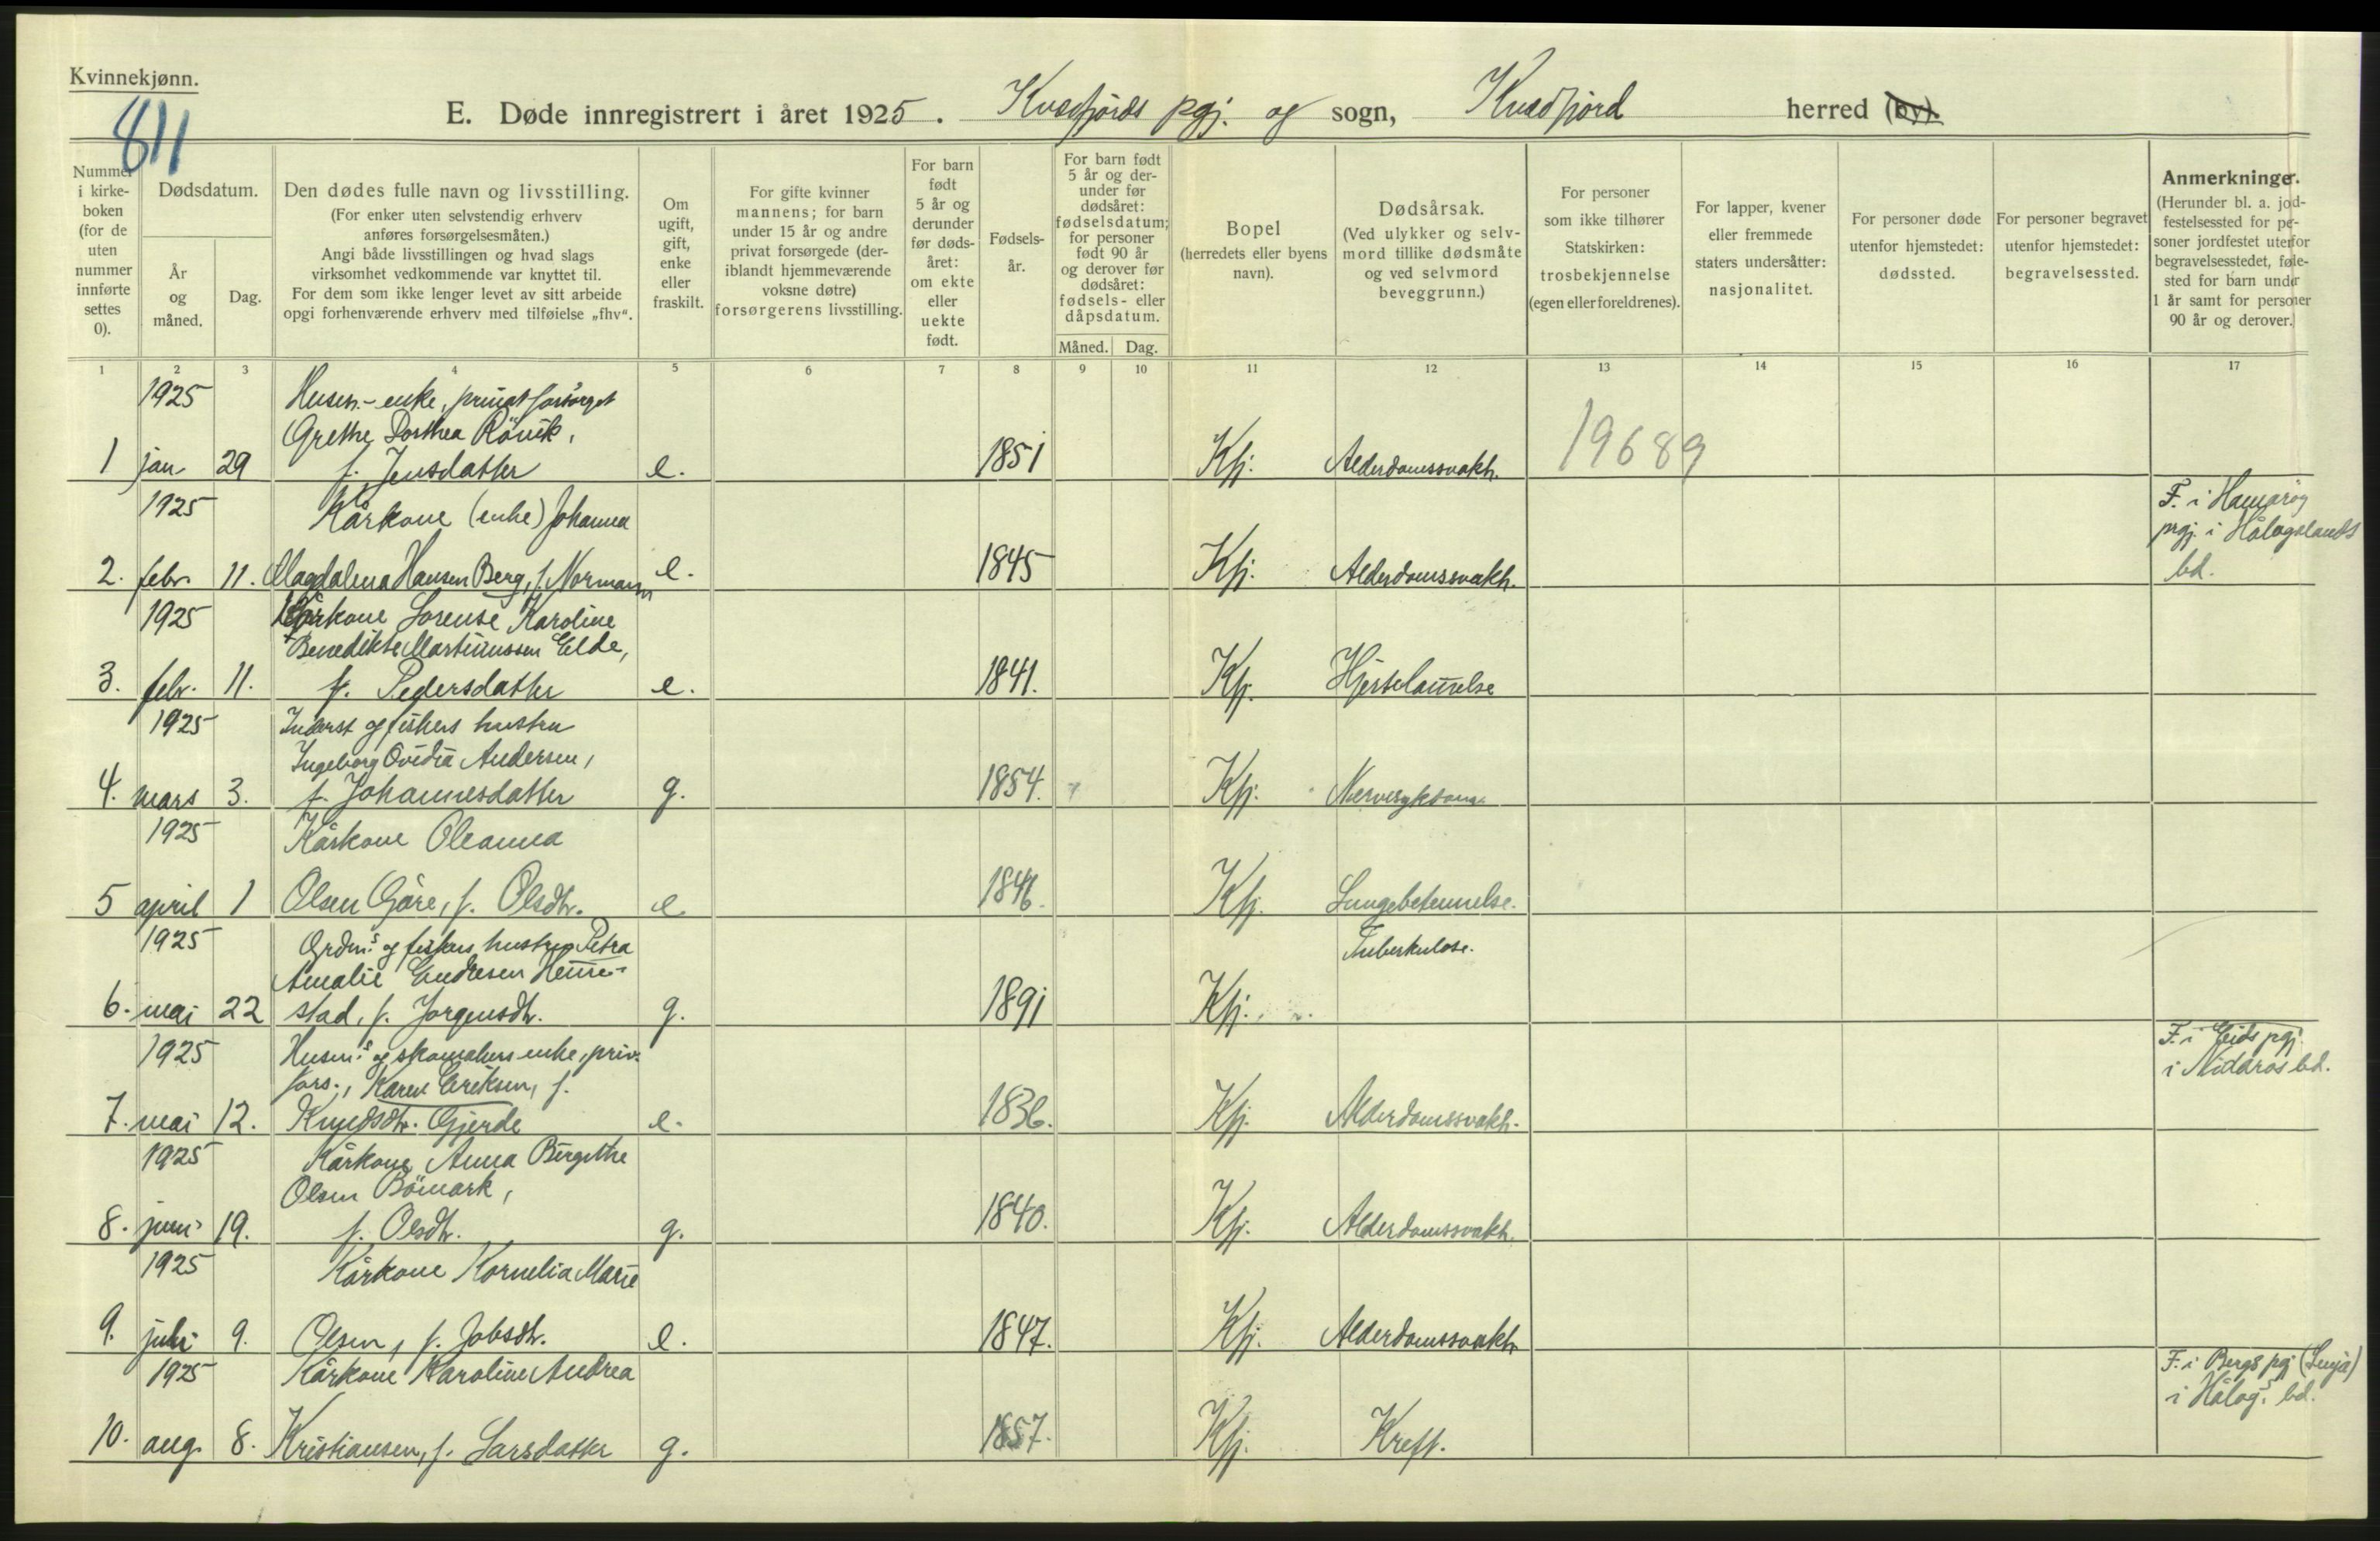 Kvinnekjønn.
811
E. Døde innregistrert i året 1925. Kvæfjords pgj. og sogn, Kvæfjord herred (by).
Nummer i kirke-boken (for de uten nummer innførte settes 0).
Dødsdatum.
År og måned.
Dag.
Den dødes fulle navn og livsstilling.
(For enker uten selvstendig erhverv
anføres forsørgelsesmåten.)
Angi både livsstillingen og hvad slags
virksomhet vedkommende var knyttet til.
For dem som ikke lenger levet av sitt arbeide
opgi forhenværende erhverv med tilføielse „fhv“.
Om ugift, gift, enke eller fraskilt.
For gifte kvinner
mannens; for barn
under 15 år og andre
privat forsørgede (der-
iblandt hjemmeværende
voksne døtre)
forsørgerens livsstilling.
For barn født 5 år og derunder før døds-året: om ekte eller uekte født.
Fødsels-år.
For barn født
5 år og der-
under før
dødsåret:
fødselsdatum;
for personer
født 90 år
og derover før
dødsåret:
fødsels- eller
dåpsdatum.
Måned. Dag.
Bopel
(herredets eller byens
navn).
Dødsårsak.
(Ved ulykker og selv-
mord tillike dødsmåte
og ved selvmord
beveggrunn.)
For personer
som ikke tilhører
Statskirken:
trosbekjennelse
(egen eller foreldrenes).
For lapper, kvener
eller fremmede
staters undersåtter:
nasjonalitet.
For personer døde
utenfor hjemstedet:
dødssted.
For personer begravet
utenfor hjemstedet:
begravelsessted.
Anmerkninger.
(Herunder bl. a. jord-
festelsessted for per-
soner jordfestet utenfor
begravelsesstedet, føde-
sted for barn under
1 år samt for personer
90 år og derover.)
1 2 3 4 5 6 7 8 9 10 11 12 13 14 15 16 17
1925 Husm.-enke, privat forsørget
Grethe Dorthea Rönik,
1 jan 29 f. Jensdatter e. 1851 Kfj. Alderdomssvakh. 19689
1925 Kårkone (enke) Johanna
2. febr. 11. Magdalena Hansen Berg, f. Normann e. 1845 Kfj. Alderdomssvakh.
F. i Hamarøy
prgj. i Hålogalands
bd.
1925 Kårkone Sorense Karoline
Benedikte Martinussen Elde,
3. febr. 11. f. Pedersdatter e. 1841. Kfj. Hjertelammelse
1925 Inderst og fiskers hustru
Ingeborg Ovidia Andersen,
4. mars 3. f. Johannesdatter g. 1854. Kfj. Nervesykdom.
1925 Kårkone Oleanna
5 april 1 Olsen Gåre, f. Olsdtr. e. 1846. Kfj. Lungebetennelse.
1925 Grdm.s og fiskers hustru Petra
Amalie Endresen Hemme-
6. mai 22 stad, f. Jorgensdtr. g. 1891 Kfj. Tuberkulose.
1925 Husm.s og skomakers enke, priv.
fors., Karen Eriksen, f.
7. mai 12. Knudsdtr. Gjerde e. 1836. Kfj. Alderdomssvakh.
F. i Eids pgj.
i Nidaros bd.
1925 Kårkone Anna Bergithe
Olsen Bömark,
8. juni 19. f. Olsdtr. g. 1840. Kfj. Alderdomssvakh.
1925 Kårkone Kornelia Marie
9. juli 9. Olsen, f. Jobsdtr. e. 1847. Kfj. Alderdomssvakh.
1925 Kårkone Karoline Andrea
10. aug. 8. Kristiansen, f. Larsdatter g. 1857. Kfj. Kreft.
F. i Bergs pgj (Senja)
i Hålog.s bd.